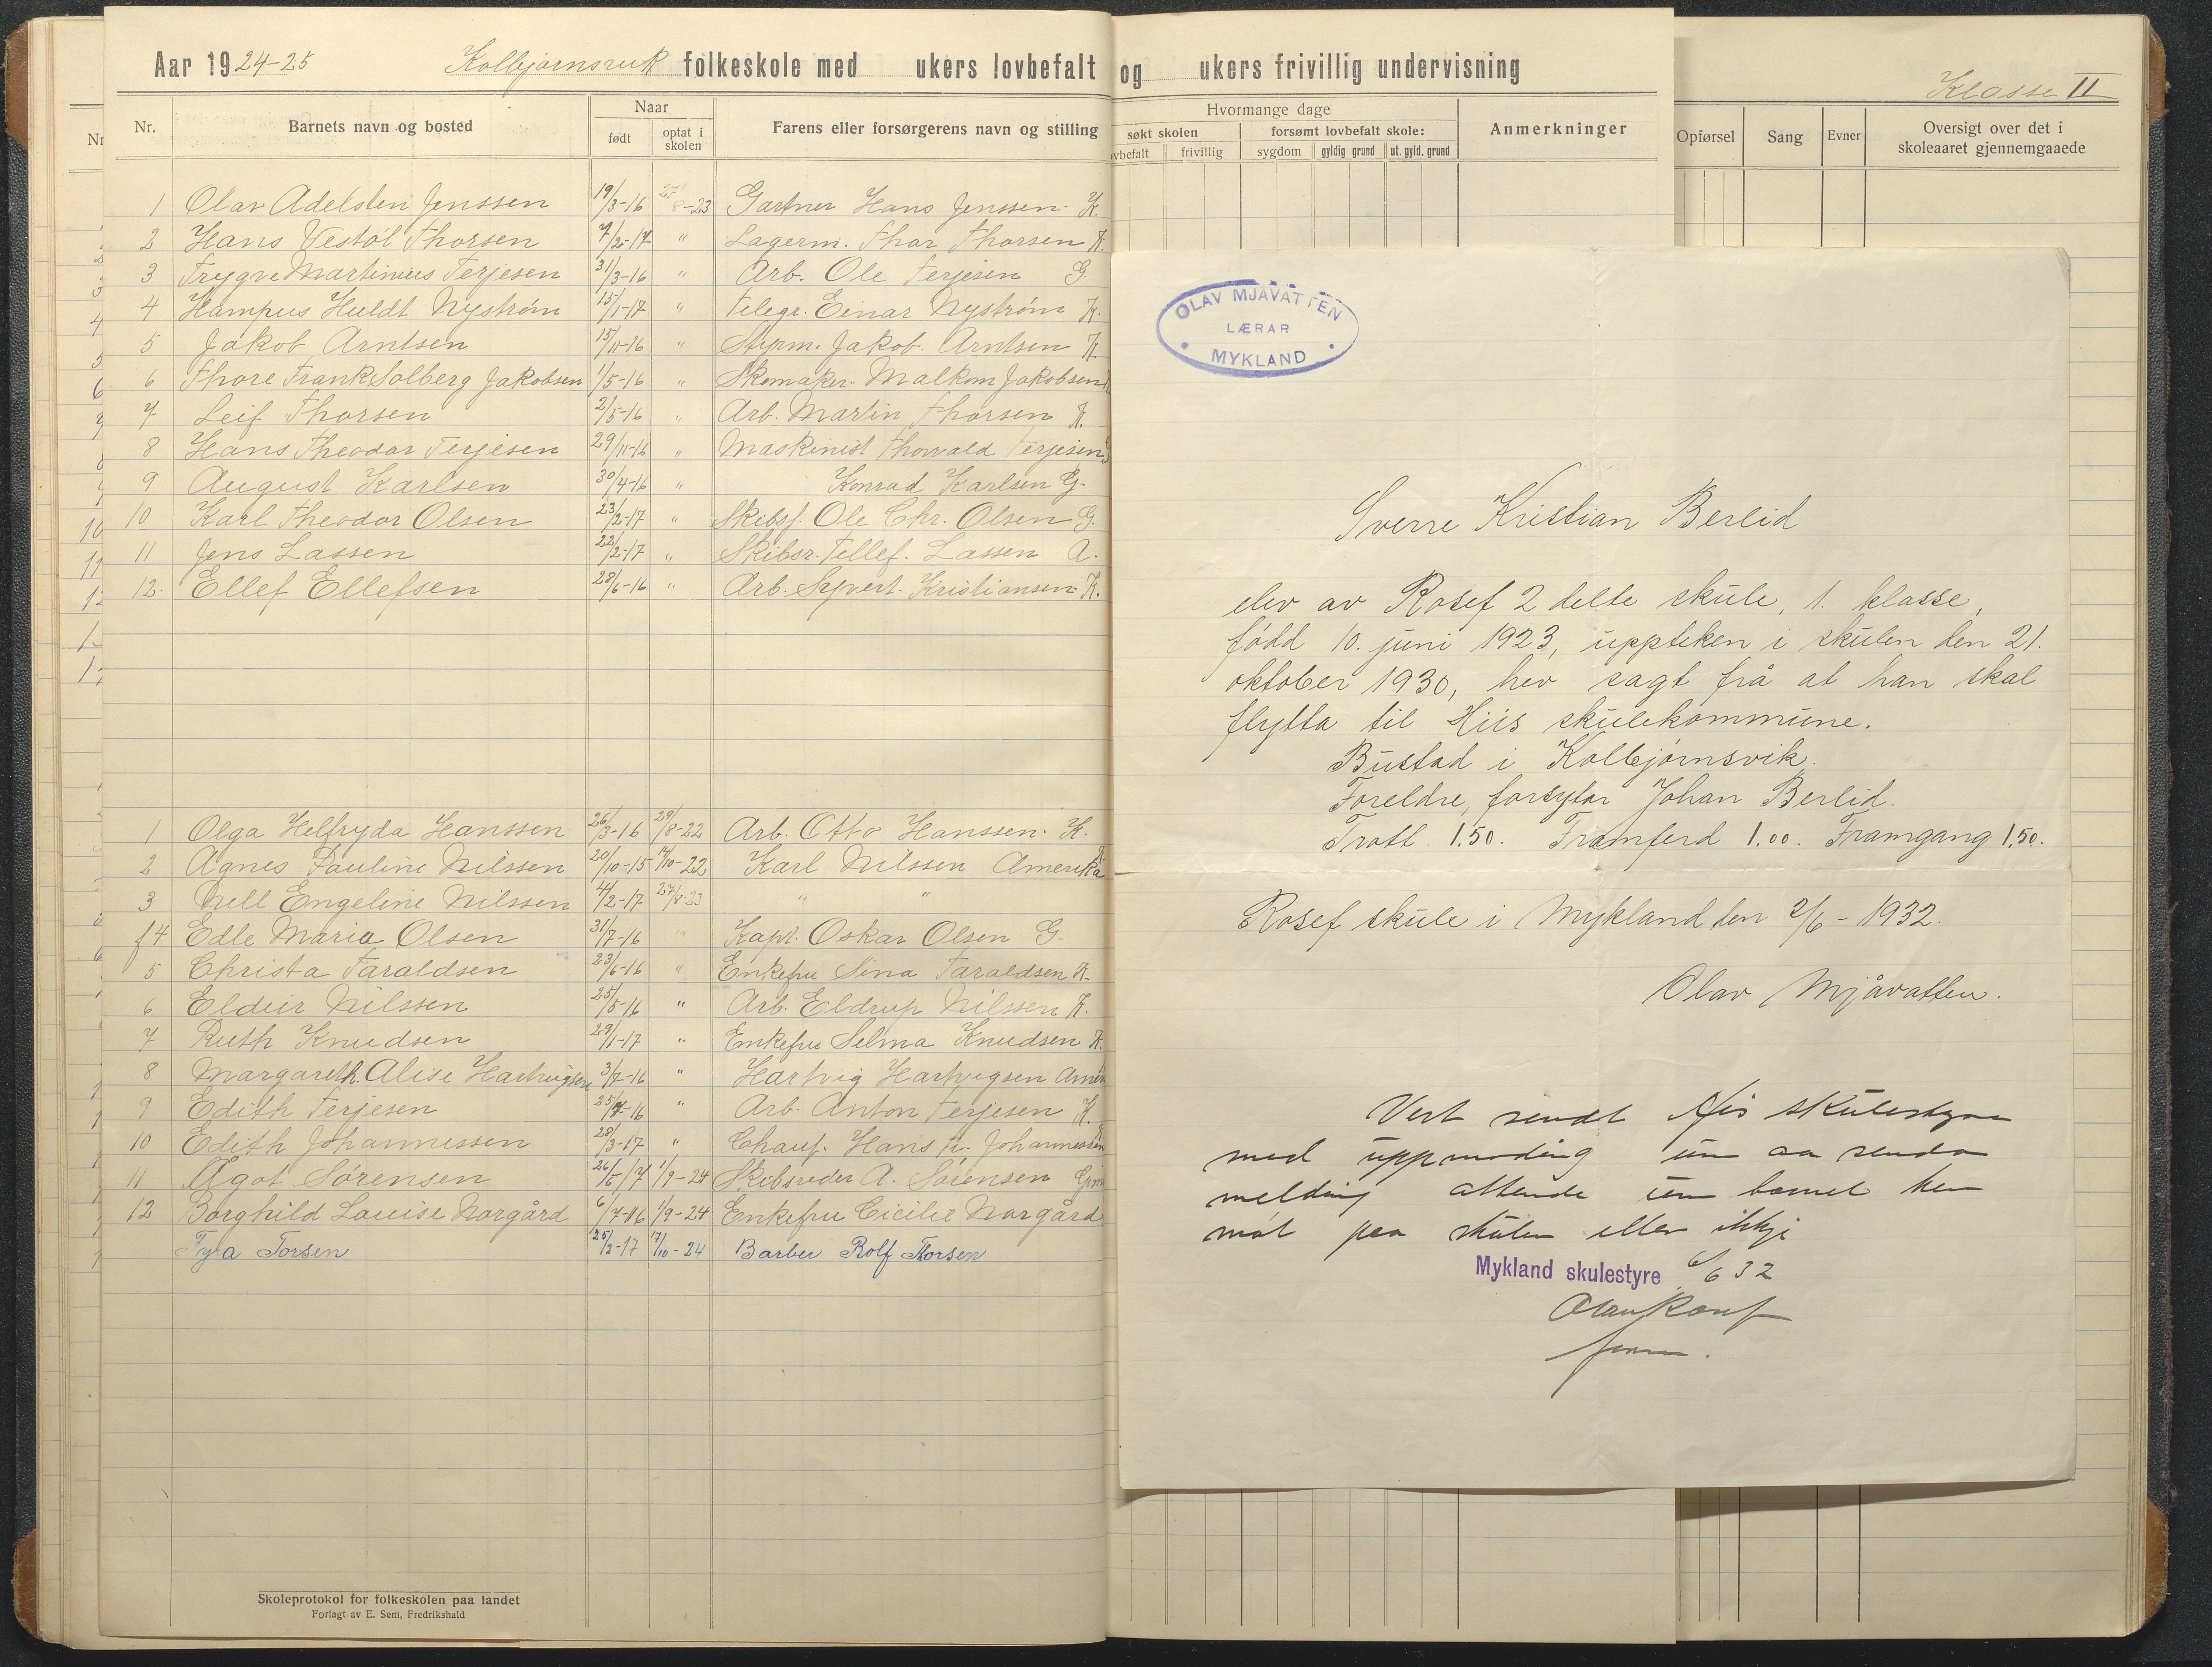 Aar 1924-25 Kolbjørnsvik folkeskole med ukers lovbefalt og ukers frivillig undervisning
Klasse II
Nr. Barnets navn og bosted Naar født optat i skolen Farens eller forsørgerens navn og stilling
Hvormange dage søkt skolen lovbefalt frivillig forsømt lovbefalt skole: sygdom gyldig grund ut. gyld. grund Anmerkninger
Opførsel Sang Evner Oversigt over det i skoleaaret gjennemgaaede
1 Olav Adelsten Jenssen 19/3-16 27/8-23 Gartner Hans Jenssen K.
2 Hans Vestøl Thorsen 7/2-17 " Lagerm. Thor Thorsen K.
3 Trygve Martinius Terjesen 31/3-16 " Arb. Ole Terjesen G.
4 Hampus Huldt Nystrøm 15/1-17 " Telegr. Einar Nystrøm K.
5 Jakob Arntsen 15/11-16 " Styrm. Jakob Arntsen K.
6 Thore Frank Solberg Jakobsen 1/5-16 " Skomaker Malkom Jakobsen
7 Leif Thorsen 2/5-16 " Arb. Martin Thorsen K.
8 Hans Theodor Terjesen 29/11-16 " Maskinist Thorvald Terjesen
9 August Karlsen 30/4-16 " Konrad Karlsen G.
10 Karl Theodor Olsen 23/2-17 " Skibsf. Ole Chr. Olsen G.
11 Jens Lassen 22/2-17 " Skibsr. Tellef. Lassen A.
12. Ellef Ellefsen 28/6-16 " Arb. Syvert Kristiansen K.
1 Olga Helfryda Hanssen 26/3-16 29/8-22 Arb. Otto Hanssen. K.
2 Agnes Pauline Nilssen 20/10-15 14/10-22 Karl Nilssen Amerika
3 Nell Engeline Nilssen 4/2-17 27/8-23 " "
4 Edle Maria Olsen 31/7-16 " Kapt. Oskar Olsen G.
5 Christa Taraldsen 23/6-16 " Enkefru Sina Taraldsen K.
6 Eldur Nilssen 25/5-16 " Arb. Eldrup Nilssen K.
7 Ruth Knudsen 29/1-17 " Enkefru Selma Knudsen K.
8 Margareth. Alise Hartvigsen 3/7-16 " Hartvig Hartvigsen Amer
9 Edith Terjesen 25/7-16 " Arb. Anton Terjesen K.
10 Edith Johannessen 28/3-17 " Chauf. Hans Johannessen
11 Ågot Sørensen 26/5-17 1/9-24 Skibsreder A. Sørensen
12 Borghild Louise Norgård 6/7-16 1/9-24 Enkefru Cicilie Norgård
Fyra Torsen 25/2-17 7/10-24 Barber Rolf Thorsen
Skoleprotokol for folkeskolen paa landet
Forlagt av E. Sem, Fredrikshald
OLAV MJÅVATTEN
LÆRAR
MYKLAND
Sverre Kristian Berlid
elev av Rosef 2 delte skule, 1. klasse,
född 10. juni 1923, uppteken i skulen den 21.
oktober 1930, hev sagt frå at han skal
flytta til Hiis skulekommune.
Bustad i Kolbjørnsvik.
Foreldre, forsytar Johan Berlid.
Trott 1.50. Framferd 1.00. Framgang 1.50.
Rosef skule i Mykland den 2/6-1932.
Olav Mjåvatten.
Vert sendt His skulestyre
med uppmoding um aa senda
melding attende um barnet hev
møt paa skulen eller ikkje
Mykland skulestyre 6/6 32